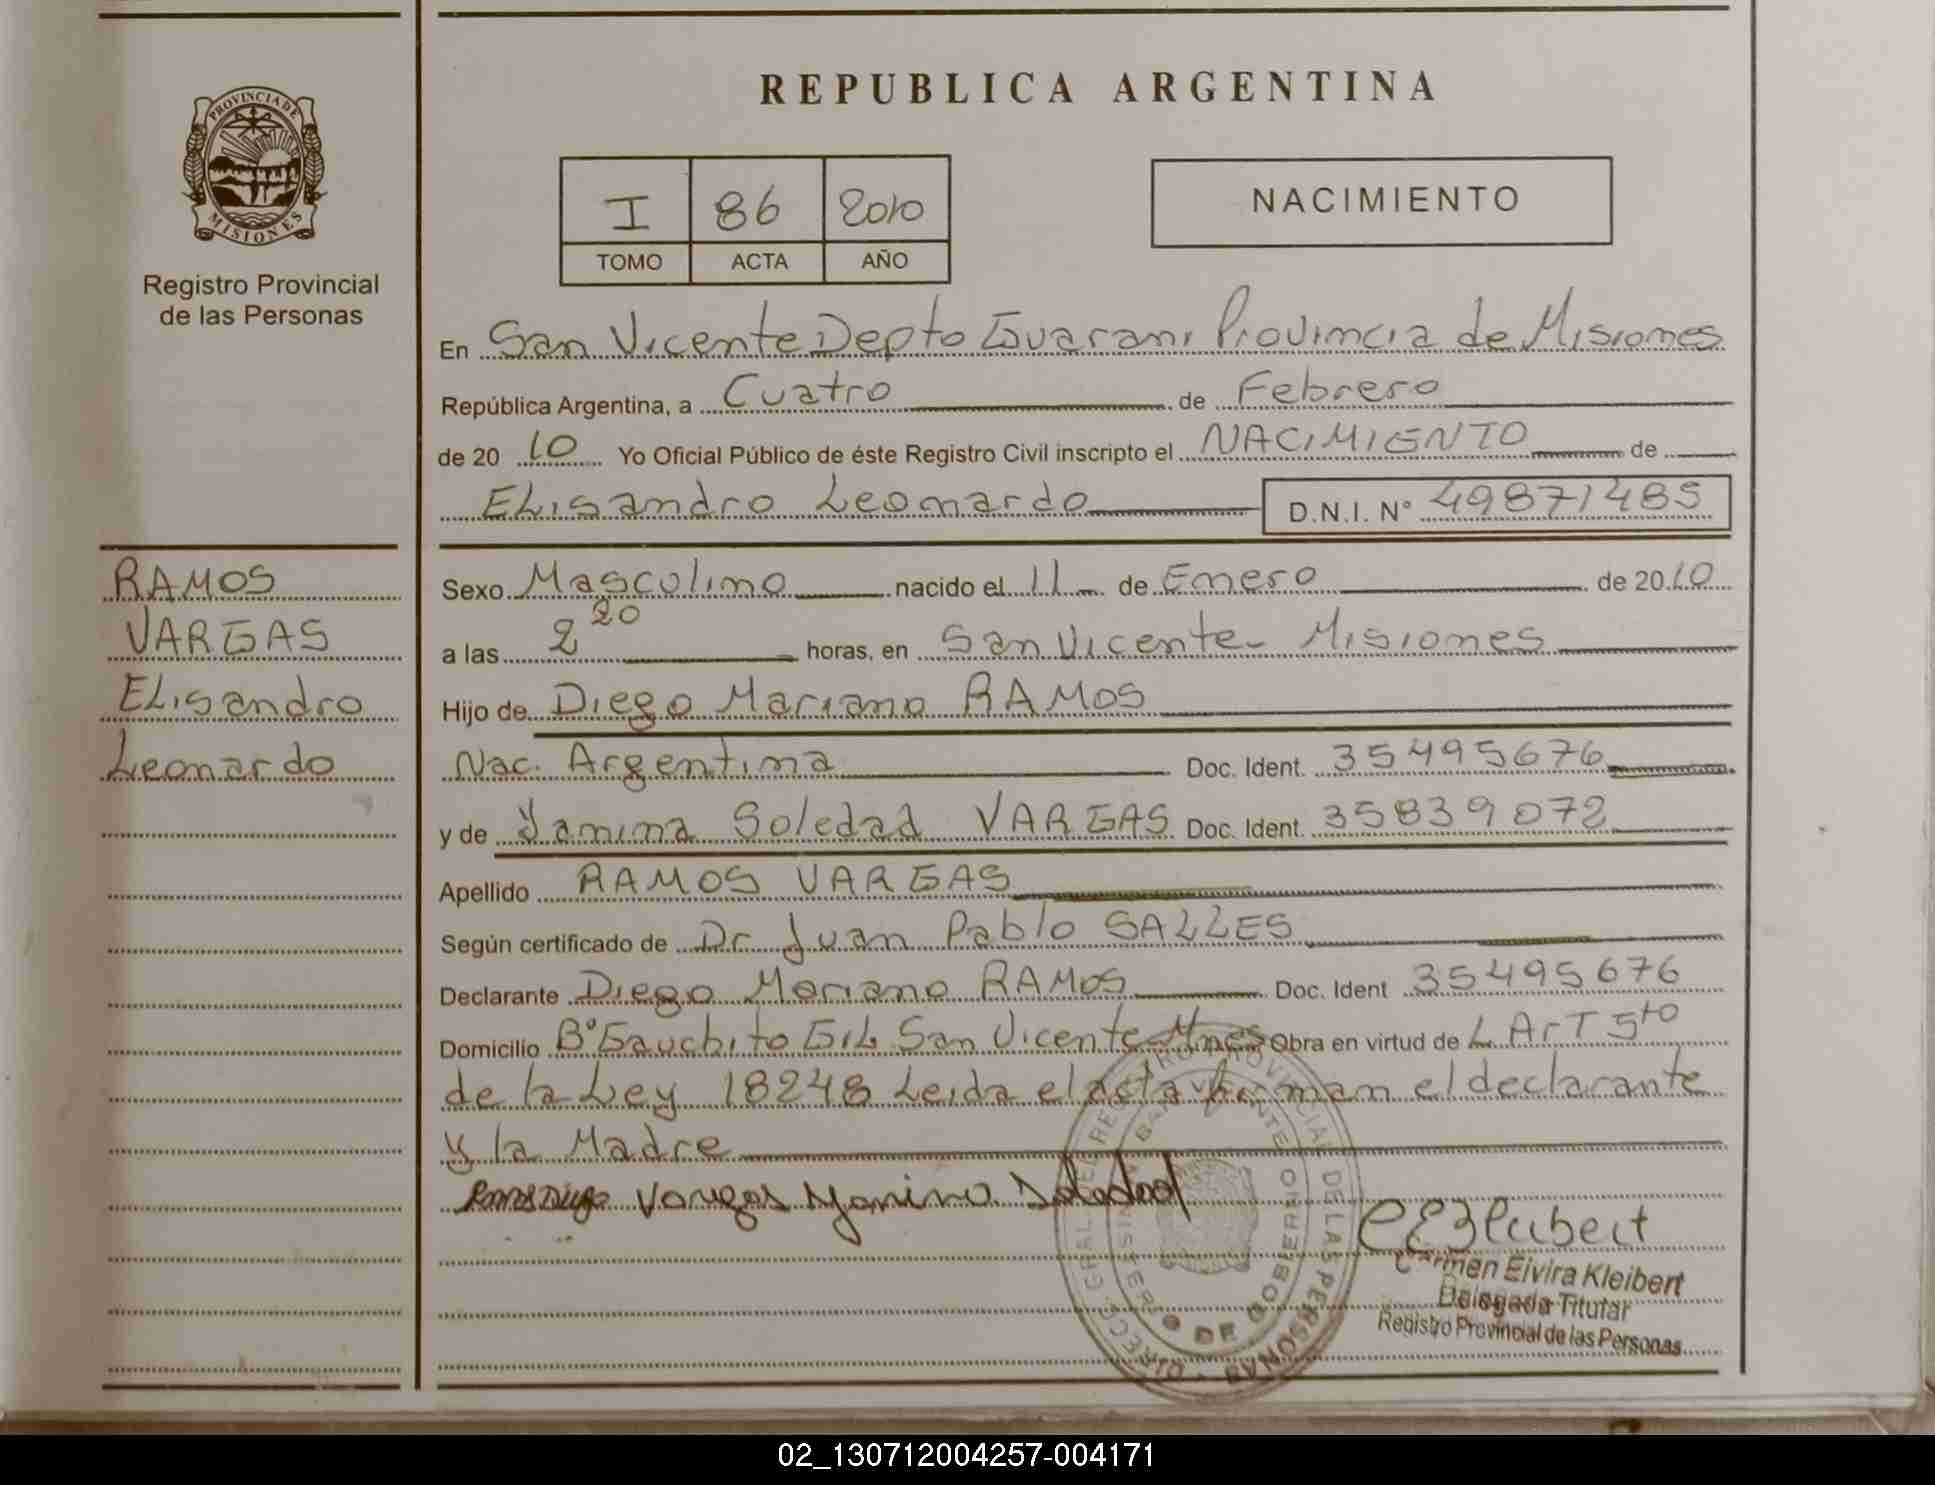 REPUBLICA ARGENTINA
PROVINCIA DE
MISIONES
Registro Provincial
de las Personas
I 86 2010
TOMO ACTA AÑO
NACIMIENTO
En San Vicente Depto Guarani Provincia de Misiones
República Argentina, a Cuatro de Febrero
de 20 10 Yo Oficial Público de éste Registro Civil inscripto el NACIMIENTO de
Elisandro Leonardo D.N.I. N° 49871485
RAMOS
VARGAS
Elisandro
Leonardo
Sexo Masculino nacido el 11 de Enero de 2010
a las 2 20 horas, en San Vicente - Misiones
Hijo de Diego Mariano RAMOS
Nac. Argentina Doc. Ident. 35495676
y de Yanina Soledad VARGAS Doc. Ident. 35839072
Apellido RAMOS VARGAS
Según certificado de Dr Juan Pablo SALLES
Declarante Diego Mariano RAMOS Doc. Ident 35495676
Domicilio B° Gauchito Gil San Vicente Mnes Obra en virtud de L Art 5to
de la Ley 18248 Leida el acta firman el declarante
y la Madre
Ramos Diego Vargas Yanina Soledad
Carmen Elvira Kleibert
Delegada Titular
Registro Provincial de las Personas
02_130712004257-004171